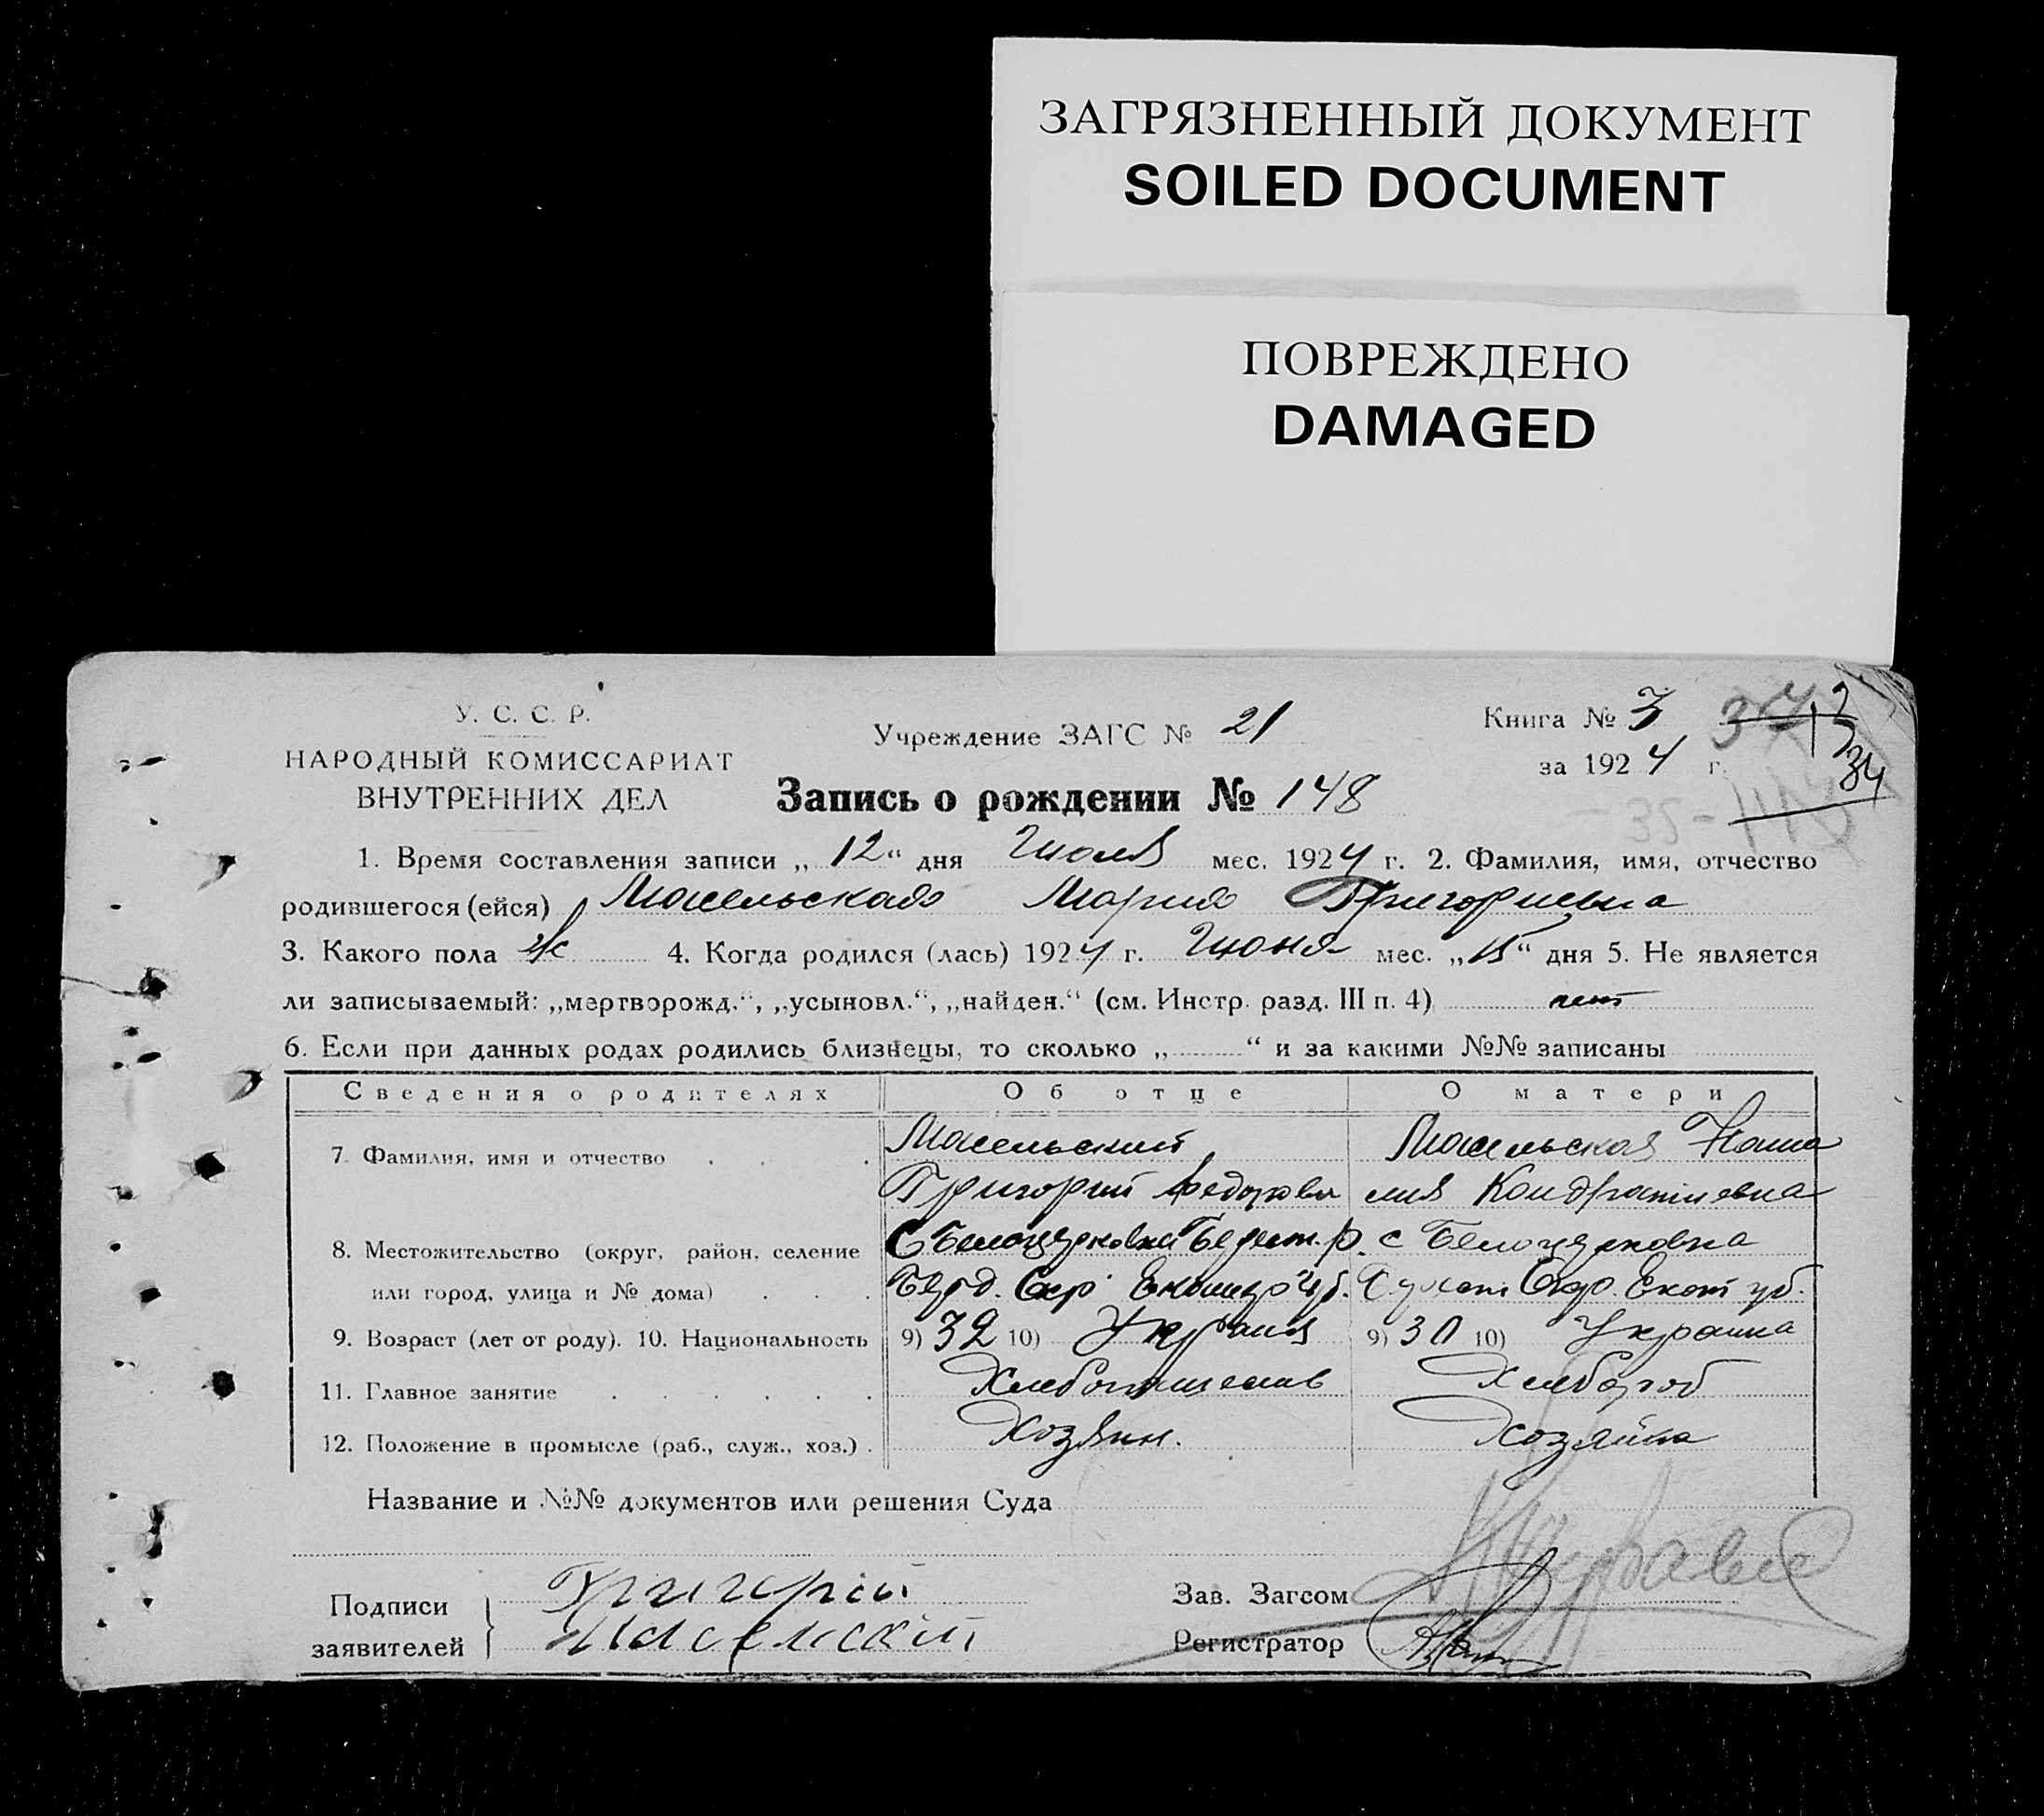 ЗАГРЯЗНЕННЫЙ ДОКУМЕНТ
SOILED DOCUMENT
ПОВРЕЖДЕНО
DAMAGED
У. С. С. Р.
НАРОДНЫЙ КОМИССАРИАТ
ВНУТРЕННИХ ДЕЛ
Учреждение ЗАГС № 21
Книга № 3
за 1924 г.
34
Запись о рождении № 148
1. Время составления записи „12“ дня Июля мес. 1924 г. 2. Фамилия, имя, отчество
родившегося (ейся) Мосельская Мария Григориевна
3. Какого пола ж 4. Когда родился (лась) 1924 г. Июня мес. „15“ дня 5. Не является
ли записываемый: „мертворожд.“, „усыновл.“, „найден.“ (см. Инстр. разд. III п. 4) нет
6. Если при данных родах родились близнецы, то сколько „ “ и за какими №№ записаны
Сведения о родителях Об отце О матери
7. Фамилия, имя и отчество Мосельский Мосельская
Григорий Федоров Кондратиевна
8. Местожительство (округ, район, селение С Белоцерковка р. с Белоцерковка
или город, улица и № дома) Берд. Окр. Окр. Екат губ.
9. Возраст (лет от роду). 10. Национальность 9) 32 10) 9) 30 10) Украинка
11. Главное занятие Хлебопашество Хлебороб
12. Положение в промысле (раб., служ., хоз.) Хозяин. Хозяйка
Название и №№ документов или решения Суда
Подписи
заявителей
Григорій
Зав. Загсом
Регистратор